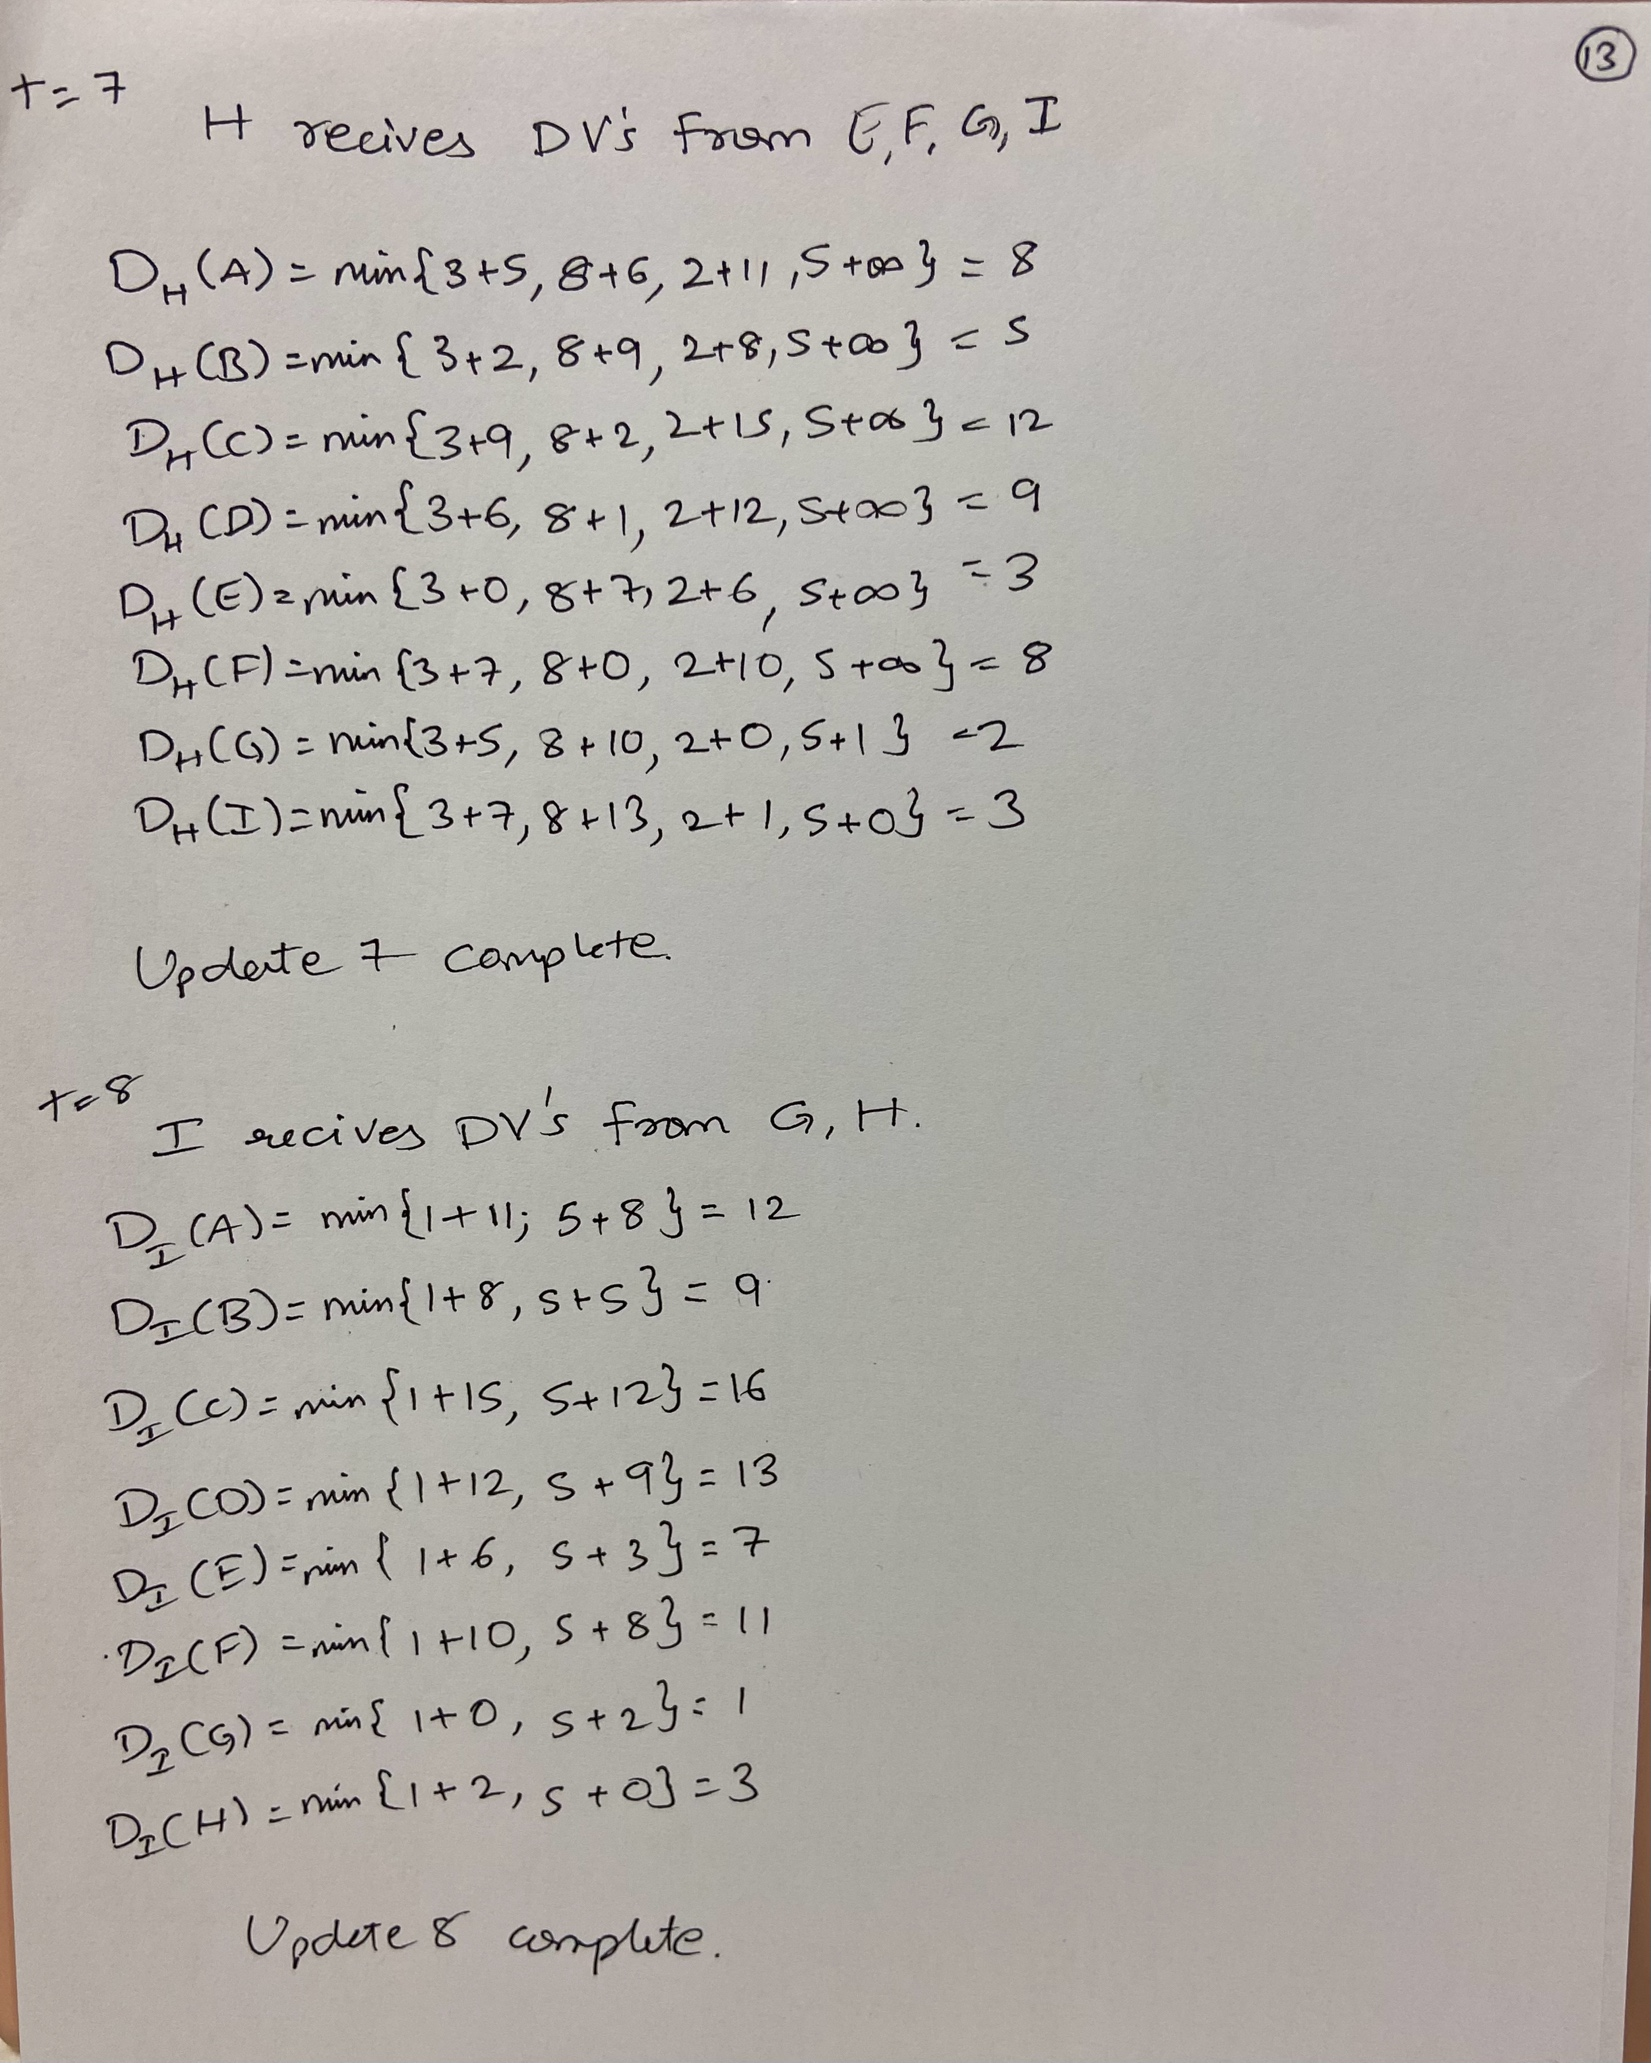 13
t=7
H recives DV's from E, F, G, I
D_H(A) = min{3+5, 8+6, 2+11, 5+∞} = 8
D_H(B) = min{3+2, 8+9, 2+8, 5+∞} = 5
D_H(C) = min{3+9, 8+2, 2+15, 5+∞} = 12
D_H(D) = min{3+6, 8+1, 2+12, 5+∞} = 9
D_H(E) = min{3+0, 8+7, 2+6, 5+∞} = 3
D_H(F) = min{3+7, 8+0, 2+10, 5+∞} = 8
D_H(G) = min{3+5, 8+10, 2+0, 5+1} = 2
D_H(I) = min{3+7, 8+13, 2+1, 5+0} = 3
Update 7 complete.
t=8
I recives DV's from G, H.
D_I(A) = min{1+11; 5+8} = 12
D_I(B) = min{1+8, 5+5} = 9
D_I(C) = min{1+15, 5+12} = 16
D_I(D) = min{1+12, 5+9} = 13
D_I(E) = min{1+6, 5+3} = 7
D_I(F) = min{1+10, 5+8} = 11
D_I(G) = min{1+0, 5+2} = 1
D_I(H) = min{1+2, 5+0} = 3
Update 8 complete.